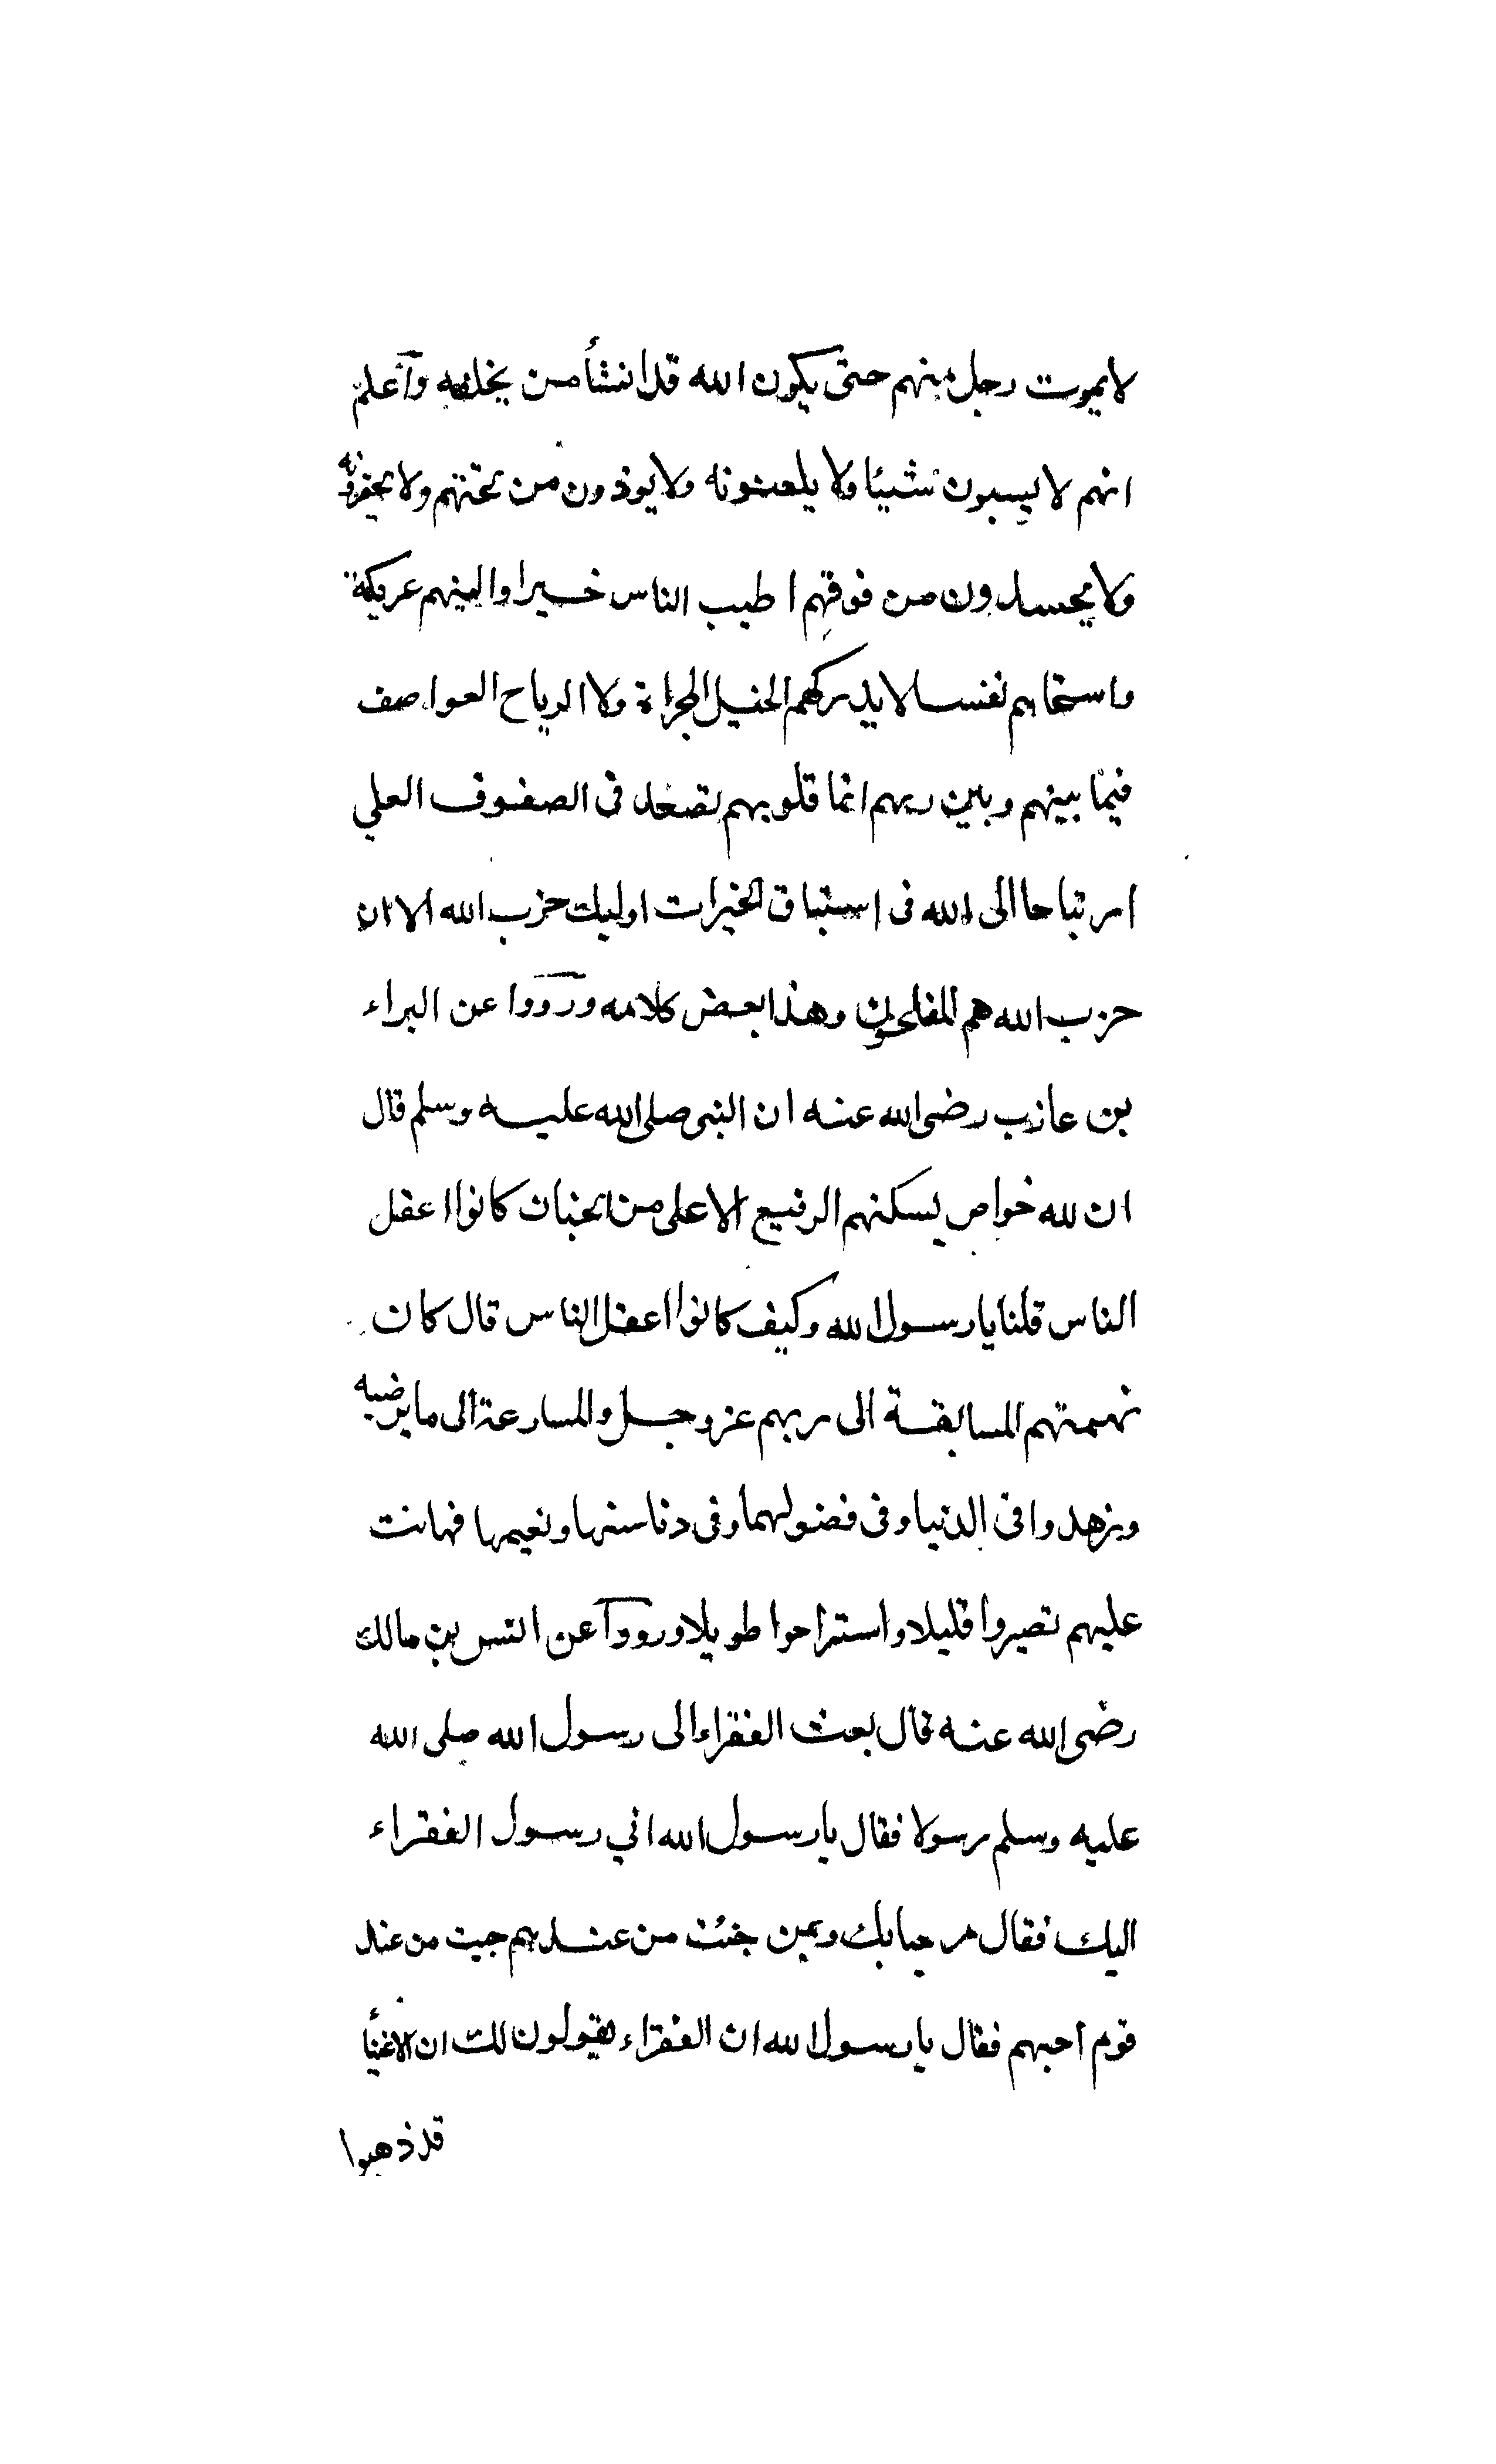 لايموت رجل منهم حتى يكون الله قد انشأ من يخلفه وآعلم
انهم لا يسبون شيئا ولا يلعنونه ولا يوذون من تحتهم ولا يحقرونه
ولا يحسدون من فوقهم اطيب الناس خبرا والينهم عريكة
واسخاهم نفسا لا يدركهم الخيل المجراة ولا الرياح العواصف
فيما بينهم وبين ربهم انما قلوبهم تصعد فى الصفوف العلي
ارتياحا الى الله فى استباق الخيرات اوليك حزب الله الا ان
حزب الله هم المفلحون وهذا بعض كلامه ورووا عن البراء
بن عازب رضى الله عنه ان النبى صلى الله عليه وسلم قال
ان لله خواص يسكنهم الرفيع الاعلى من الجنان كانوا اعقل
الناس قلنا يا رسول الله وكيف كانوا اعقل الناس قال كان
نهمتهم المسابقة الى ربهم عز وجل والمسارعة الى ما يرضيه
وزهدوا فى الدنيا وفى فضولها وفى رئاستها ونعيمها فهانت
عليهم تصبروا قليلا واستراحوا طويلا ورووآ عن انس بن مالك
رضى الله عنه قال بعث الفقراء الى رسول الله صلى الله
عليه وسلم رسولا فقال يا رسول الله اني رسول الفقراء
اليك فقال مرحبا بك وبمن جئت من عندهم جيت من عند
قوم احبهم فقال يا رسول الله ان الفقراء يقولون لك ان الاغنيأ
قد ذهبوا